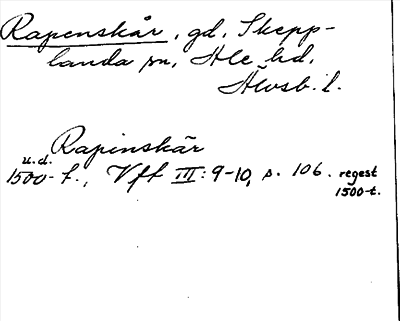 Rapenskår, gd, Skepp-
landa sn, Ale hd,
Älvsb. l.
Rapinskär
u.d.
1500-t., Vft III: 9-10, s. 106. regest
1500-t.